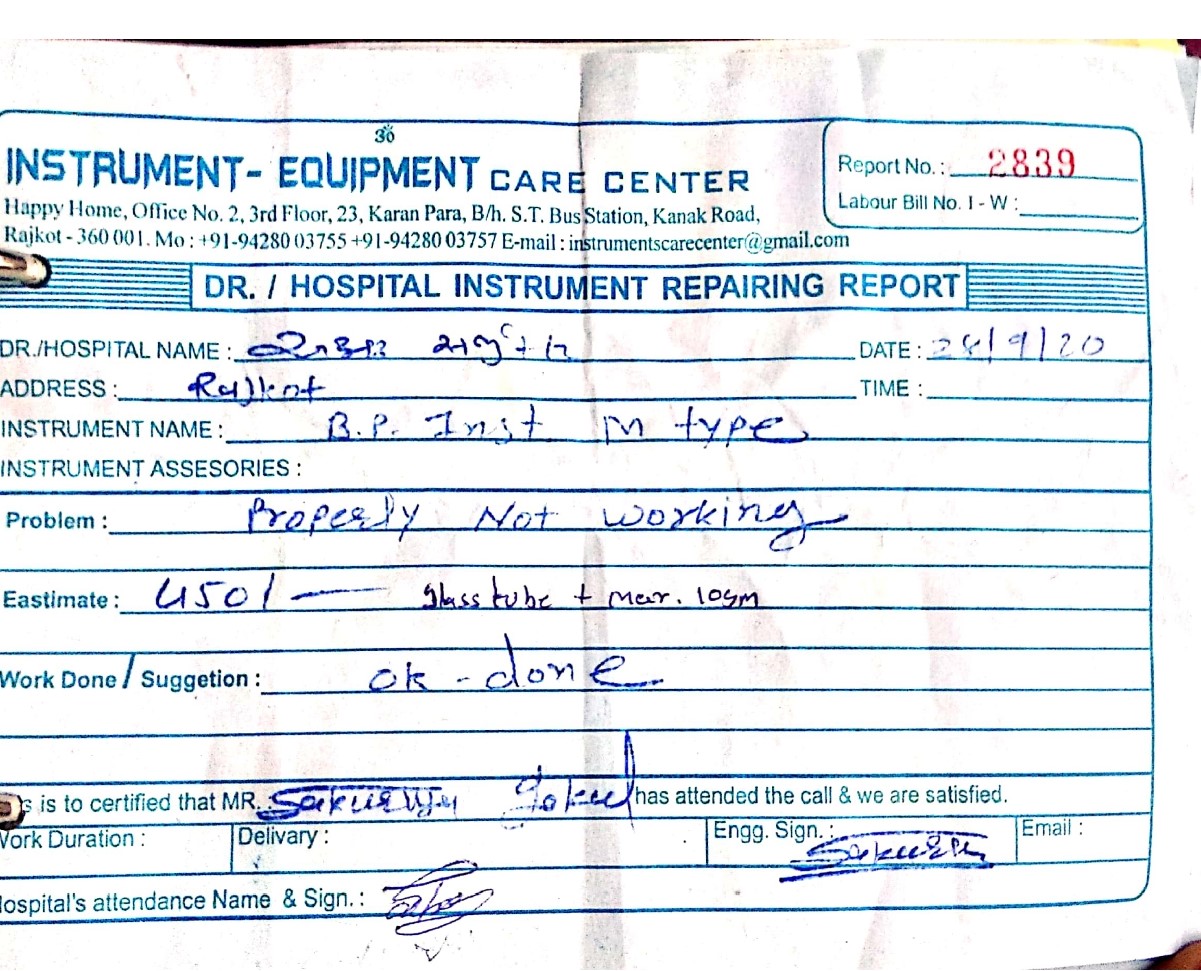 ૐ
INSTRUMENT- EQUIPMENT CARE CENTER
Happy Home, Office No. 2, 3rd Floor, 23, Karan Para, B/h. S.T. Bus Station, Kanak Road,
Rajkot - 360 001. Mo : +91-94280 03755 +91-94280 03757 E-mail : instrumentscarecenter@gmail.com
Report No. : 2839
Labour Bill No. I - W :
DR. / HOSPITAL INSTRUMENT REPAIRING REPORT
DR./HOSPITAL NAME :
DATE : 28/9/20
ADDRESS : Rajkot
TIME :
INSTRUMENT NAME : B.P. Inst M type
INSTRUMENT ASSESORIES :
Problem : Properly Not working
Eastimate : 450/- glass tube + mer. 10gm
Work Done / Suggetion : ok - done
s is to certified that MR. Gokul has attended the call & we are satisfied.
Work Duration :
Delivary :
Engg. Sign. :
Email :
Hospital's attendance Name & Sign. :